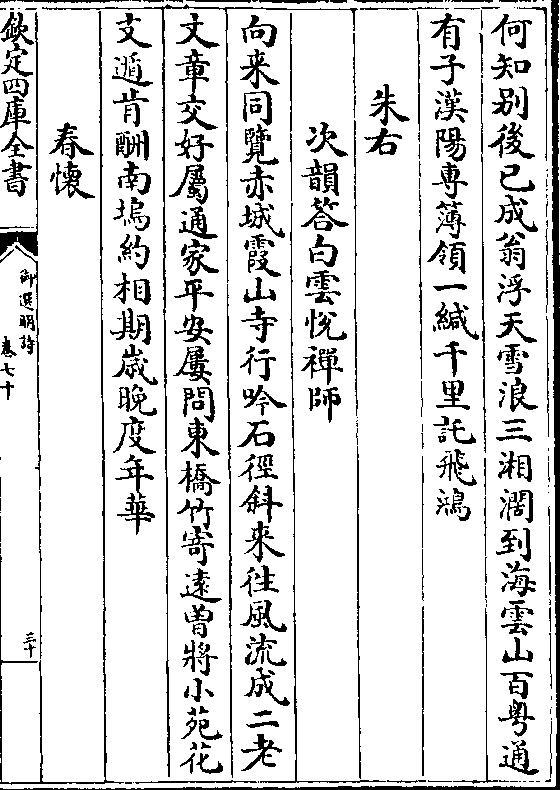 何知别後已成翁浮天雪浪三湘濶到海雲山百粤通
有子漢陽專簿領一緘千里託飛鴻
朱右
次韻答白雲悅禪師
向来同覽赤城霞山寺行吟石徑斜来往風流成二老
文章交好屬通家平安屢問東橋竹寄遠曽將小苑花
支遁肯酬南塢約相期嵗晚度年華
春懷
欽定四庫全書
御選明詩
卷七十
三十